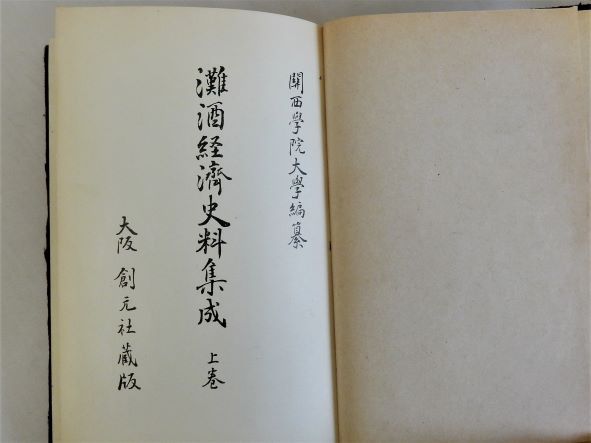 關西學院大學編纂
灘酒経濟史料集成 上巻
大阪 創元社蔵版